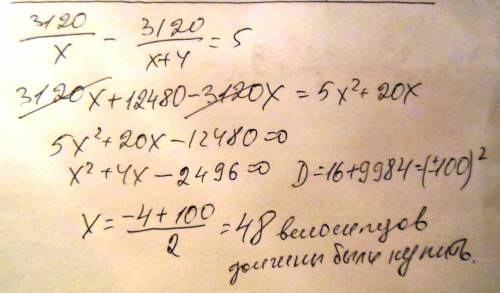 3120/x - 3120/(x+4) = 5
3120x + 12480 - 3120x = 5x² + 20x
5x² + 20x - 12480 = 0
x² + 4x - 2496 = 0 D = 16 + 9984 = (±100)²
x = (-4 + 100)/2 = 48 велосипедов
должны были купить.